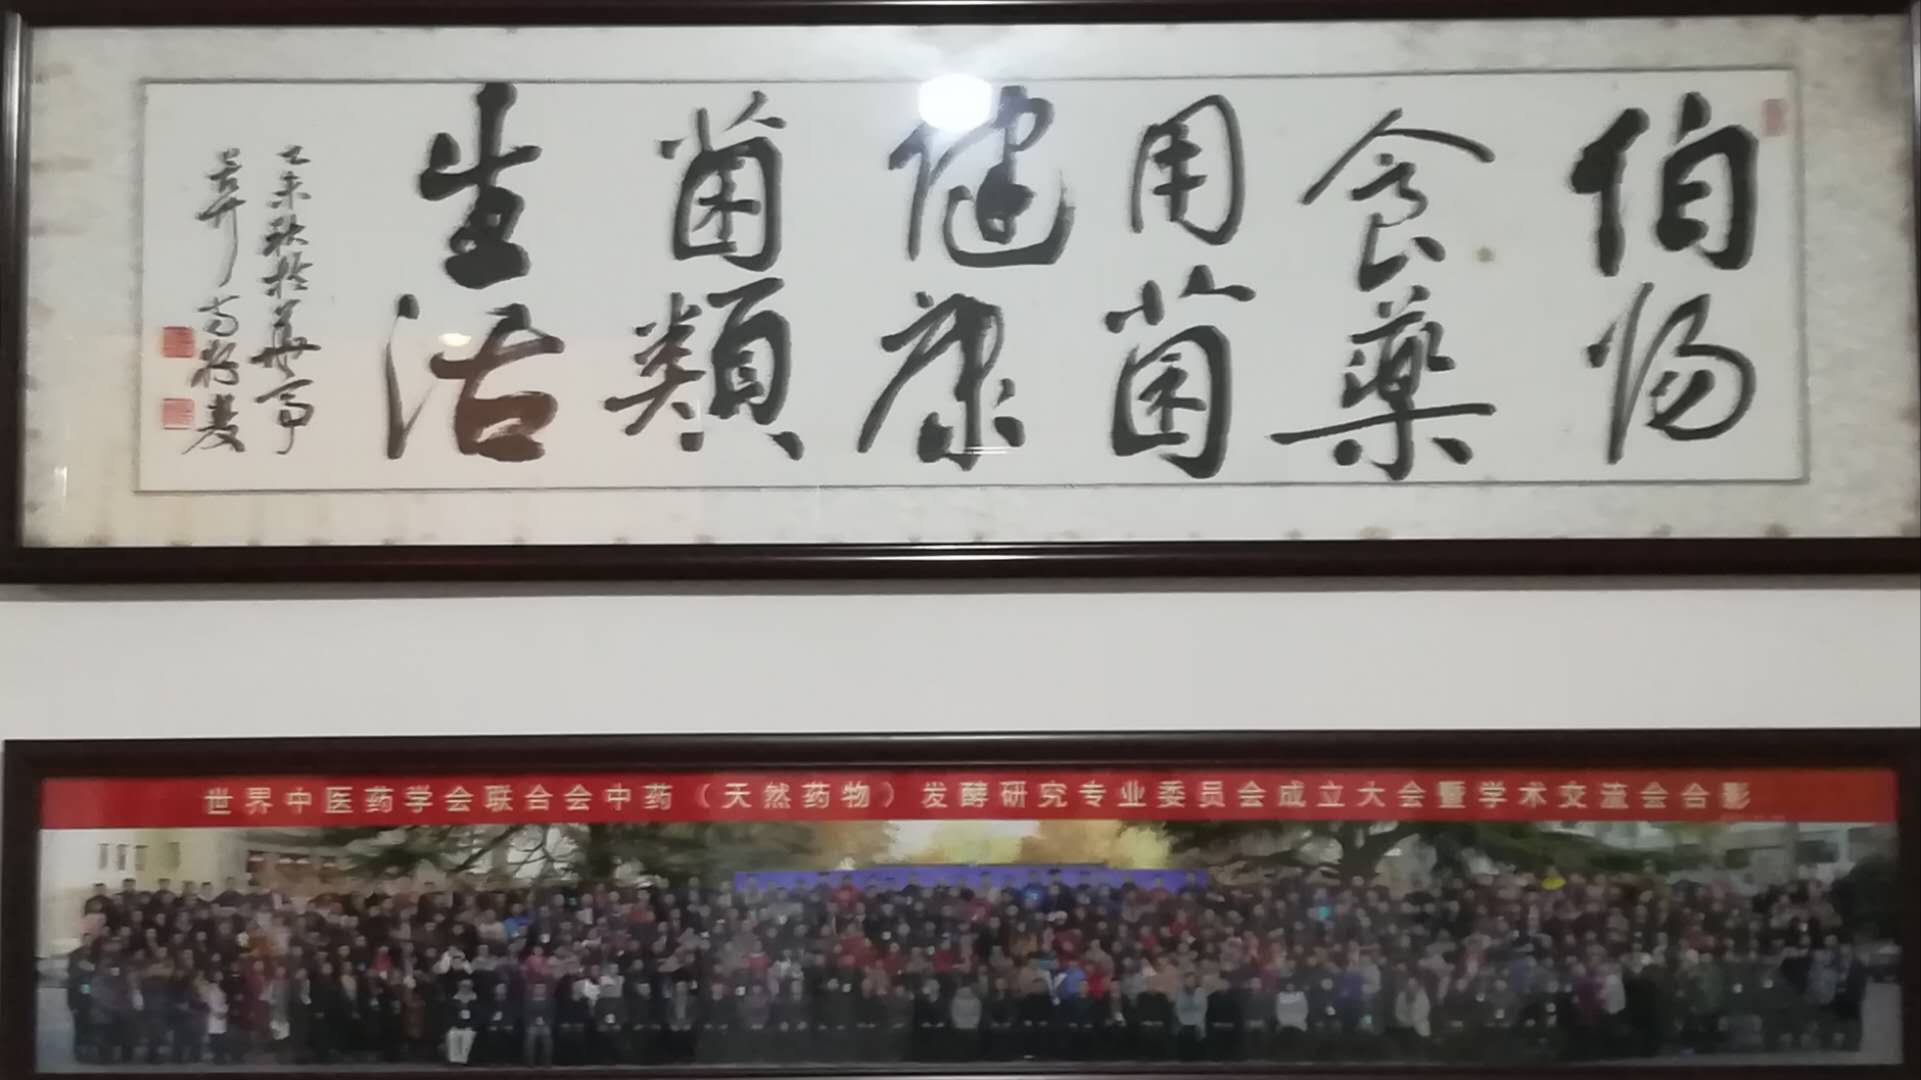 伯
食藥
用菌
健康
菌類
生活
乙未秋於華亭
世界中医药学会联合会中药（天然药物）发酵研究专业委员会成立大会暨学术交流会合影